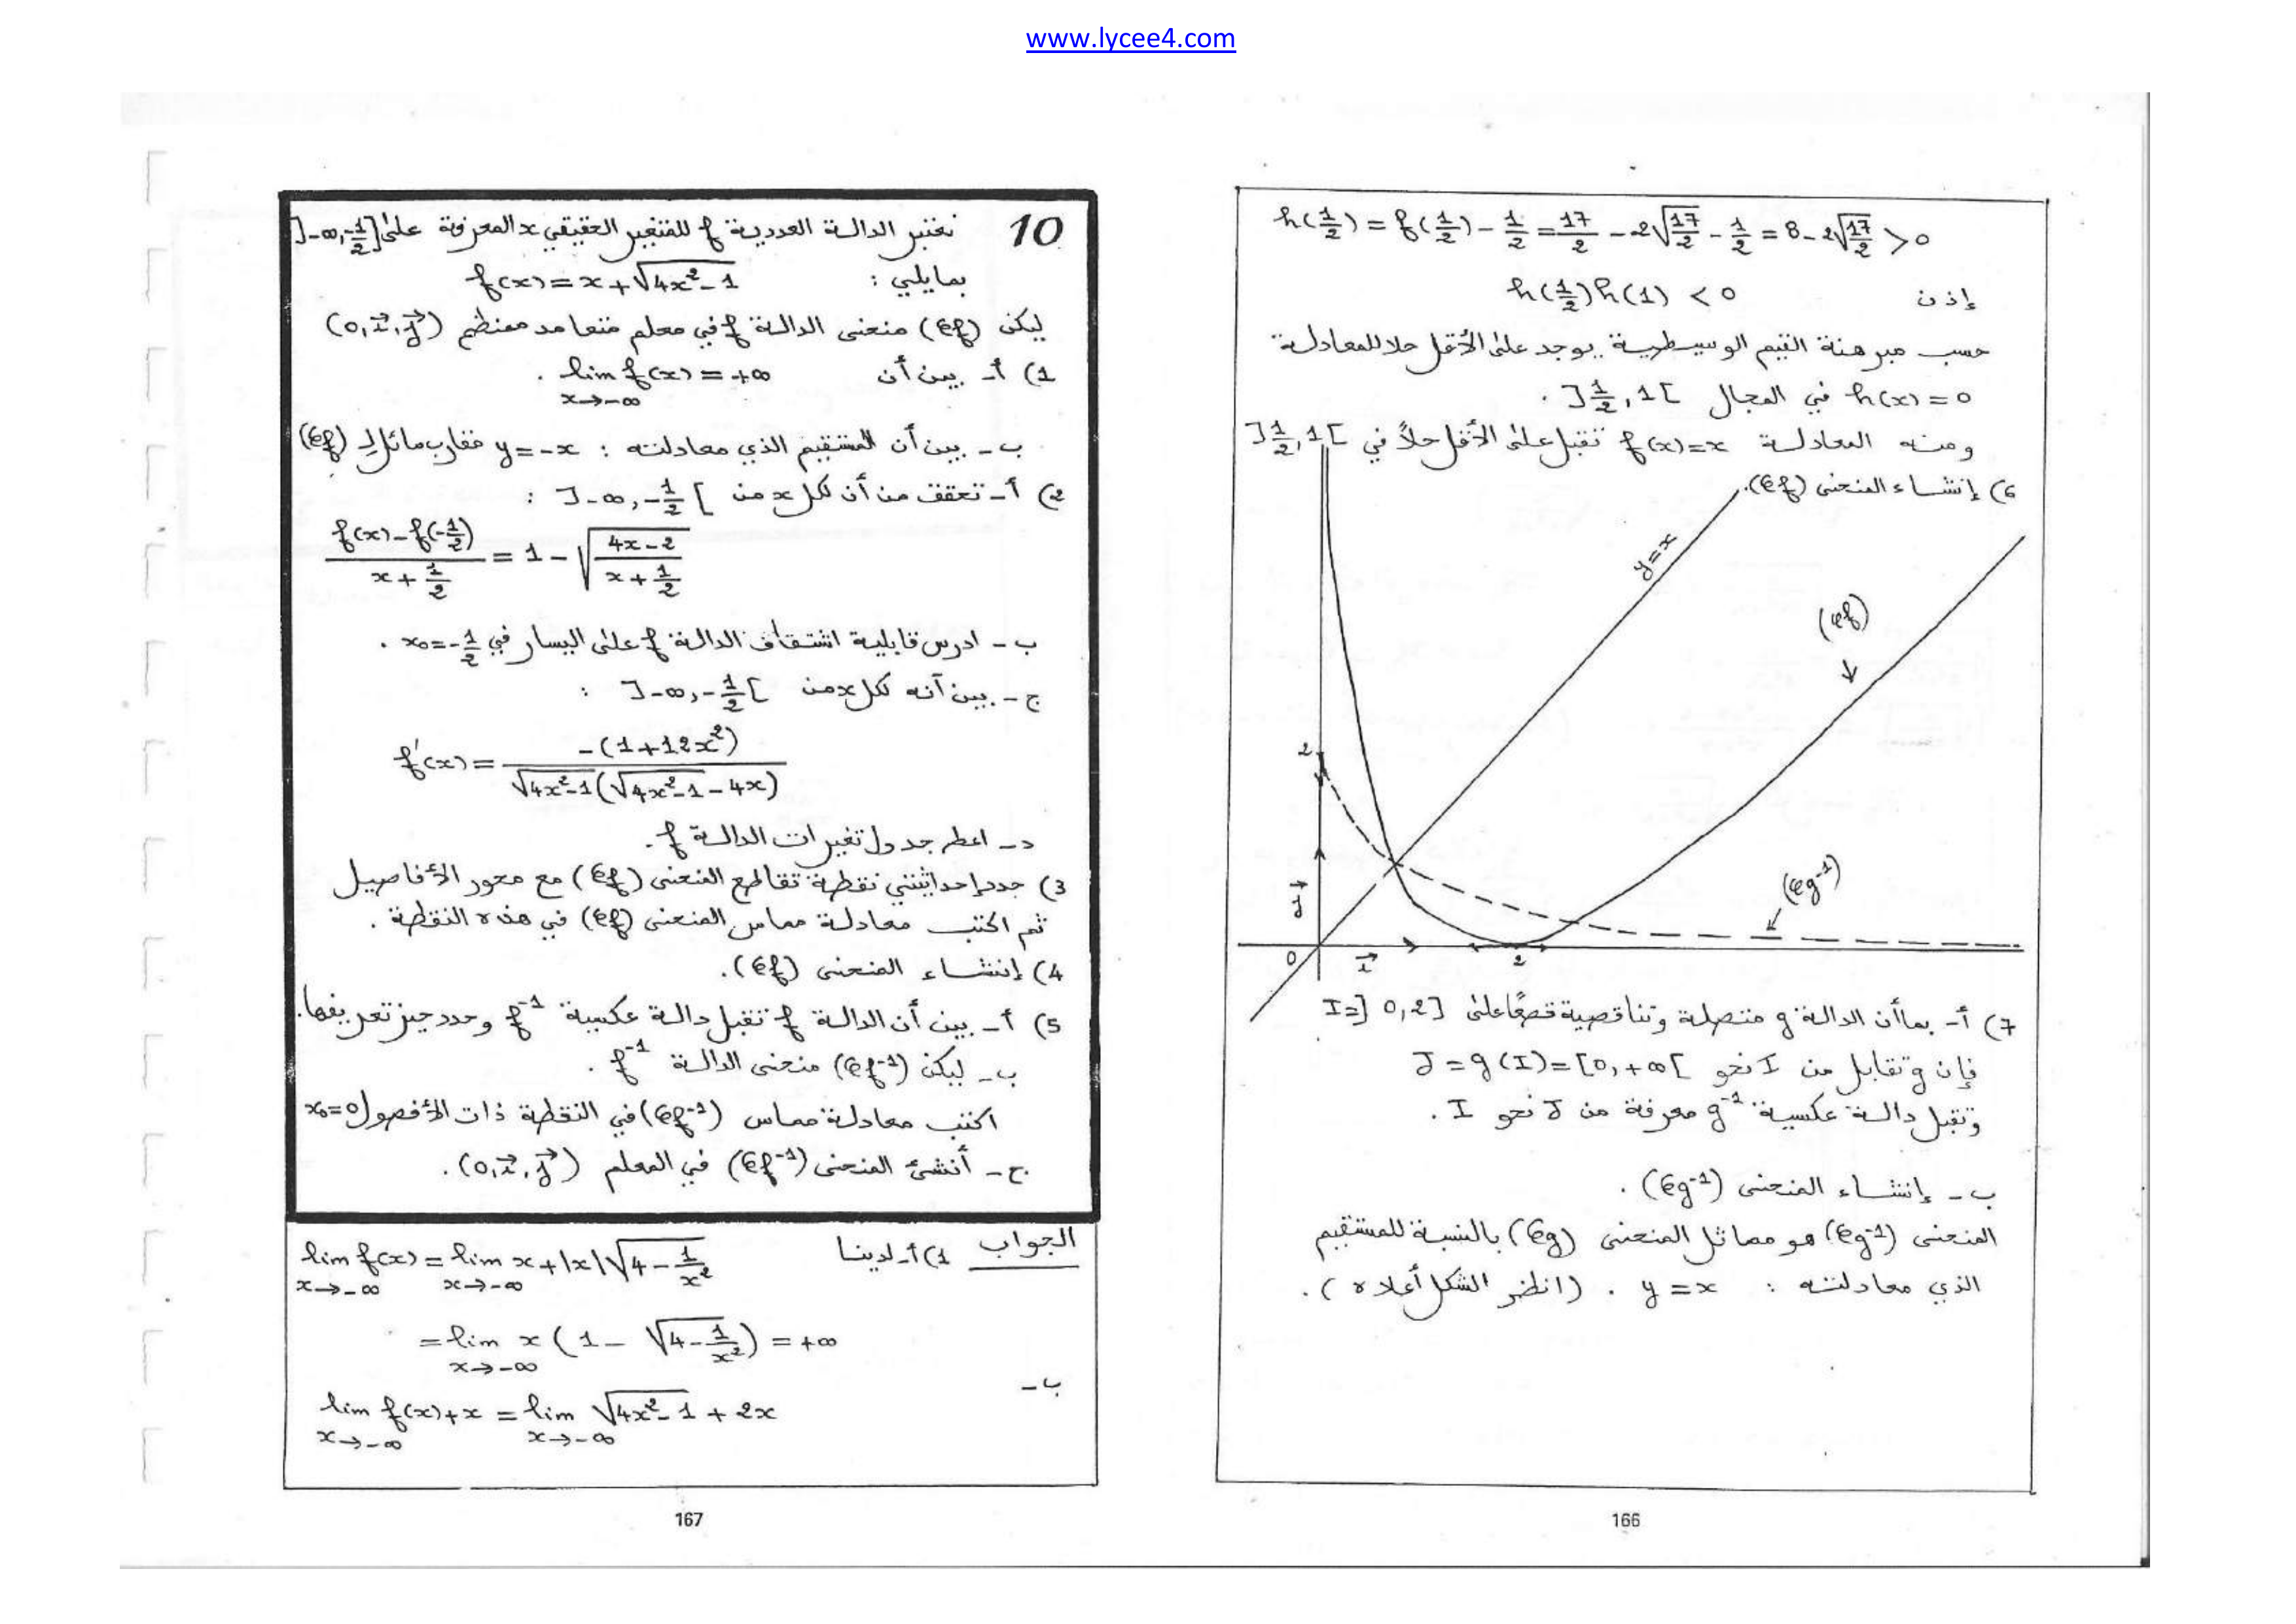 www.lycee4.com
h(1/2) = f(1/2) - 1/2 = 17/2 - 2√(17/2) - 1/2 = 8 - 2√(17/2) > 0
إذن h(1/2)h(1) < 0
حسب مبرهنة القيم الوسيطية يوجد على الأقل حلا للمعادلة
h(x) = 0 في المجال ]1/2, 1[ .
ومنه المعادلة f(x)=x تقبل على الأقل حلاً في ]1/2, 1[
6) إنشاء المنحنى (𝒞f).
y=x
(𝒞f)
2
(𝒞g⁻¹)
j
0 i 2
7) أ- بما أن الدالة g متصلة وتناقصية قطعًا على I=]0,2]
فإن g تقابل من I نحو J = g(I) = [0,+∞[
وتقبل دالة عكسية g⁻¹ معرفة من J نحو I .
ب - إنشاء المنحنى (𝒞g⁻¹) .
المنحنى (𝒞g⁻¹) هو مماثل المنحنى (𝒞g) بالنسبة للمستقيم
الذي معادلته : y = x . (انظر الشكل أعلاه) .
166
10 نعتبر الدالة العددية f للمتغير الحقيقي x المعرفة على ]-∞,-1/2]
بمايلي : f(x) = x + √(4x²-1)
ليكن (𝒞f) منحنى الدالة f في معلم متعامد ممنظم (0,i,j)
1) أ- بين أن lim f(x) = +∞ .
x→-∞
ب - بين أن المستقيم الذي معادلته : y = -x مقارب مائل لـ (𝒞f)
2) أ- تحقق من أن لكل x من ]-∞,-1/2[ :
(f(x)-f(-1/2))/(x+1/2) = 1 - √((4x-2)/(x+1/2))
ب - ادرس قابلية اشتقاق الدالة f على اليسار في x₀=-1/2 .
ج - بين أنه لكل x من ]-∞,-1/2[ :
f'(x) = -(1+12x²)/(√(4x²-1)(√(4x²-1)-4x))
د - اعط جدول تغيرات الدالة f .
3) حدد إحداثيتي نقطة تقاطع المنحنى (𝒞f) مع محور الأفاصيل
ثم اكتب معادلة مماس المنحنى (𝒞f) في هذه النقطة .
4) إنشاء المنحنى (𝒞f).
5) أ - بين أن الدالة f تقبل دالة عكسية f⁻¹ وحدد حيز تعريفها.
ب - ليكن (𝒞f⁻¹) منحنى الدالة f⁻¹ .
اكتب معادلة مماس (𝒞f⁻¹) في النقطة ذات الأفصول x₀=0
ج - أنشئ المنحنى (𝒞f⁻¹) في المعلم (0,i,j) .
الجواب 1) أ- لدينا lim f(x) = lim x+|x|√(4-1/x²)
x→-∞ x→-∞
= lim x(1 - √(4-1/x²)) = +∞
x→-∞
ب -
lim f(x)+x = lim √(4x²-1) + 2x
x→-∞ x→-∞
167